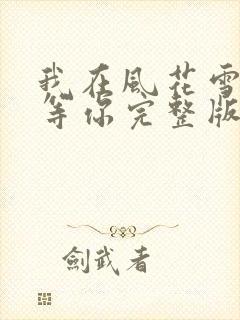 我在風花雪
等你完整版
劍武者